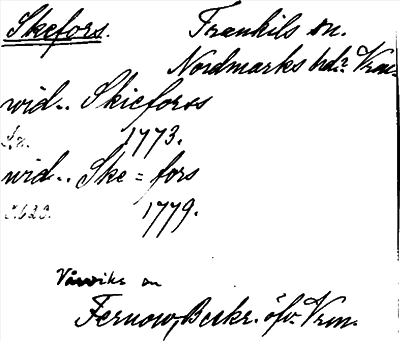 Skefors. Trankils sn.
Nordmarks hd? Vrm.
wid.. Skiceforss
1773.
wid.. Ske=fors
S.620. 1779.
Vårviks sn
Fernow, Beskr. öfv. Vrm.